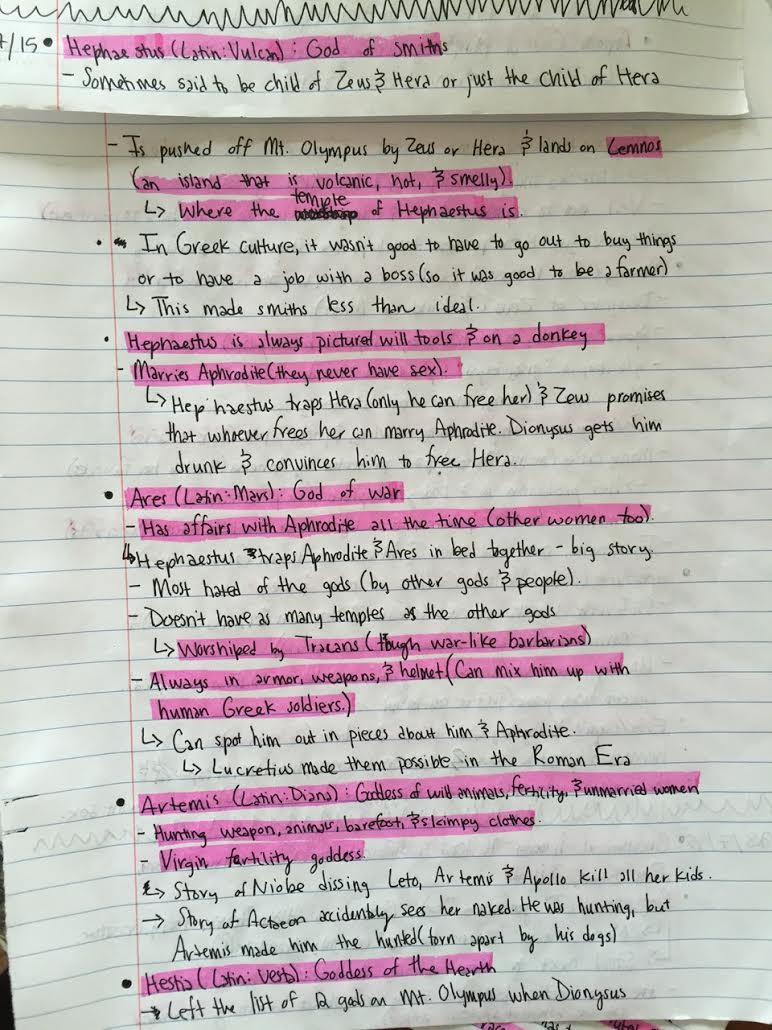 7/15 • Hephaestus (Latin: Vulcan): God of smiths
- Sometimes said to be child of Zeus & Hera or just the child of Hera
- Is pushed off Mt. Olympus by Zeus or Hera & lands on Lemnos
(an island that is volcanic, hot, & smelly).
↳ Where the temple of Hephaestus is.
• In Greek culture, it wasn't good to have to go out to buy things
or to have a job with a boss (so it was good to be a farmer)
↳ This made smiths less than ideal.
• Hephaestus is always pictured will tools & on a donkey
- Marries Aphrodite (they never have sex).
↳ Hephaestus traps Hera (only he can free her) & Zeus promises
that whoever frees her can marry Aphrodite. Dionysus gets him
drunk & convinces him to free Hera.
• Ares (Latin: Mars): God of war
- Has affairs with Aphrodite all the time (other women too).
↳ Hephaestus traps Aphrodite & Ares in bed together - big story.
- Most hated of the gods (by other gods & people).
- Doesn't have as many temples as the other gods
↳ Worshiped by Tracans (tough war-like barbarians)
- Always in armor, weapons, & helmet (Can mix him up with
human Greek soldiers.)
↳ Can spot him out in pieces about him & Aphrodite.
↳ Lucretius made them possible in the Roman Era
• Artemis (Latin: Diana): Goddess of will animals, fertility, & unmarried women
- Hunting weapon, animals, barefoot, & skimpy clothes.
- Virgin fertility goddess.
↳ Story of Niobe dissing Leto, Artemis & Apollo kill all her kids.
→ Story of Actaeon accidently sees her naked. He was hunting, but
Artemis made him the hunted (torn apart by his dogs)
• Hestia (Latin: Vesta): Goddess of the Hearth
→ Left the list of 12 gods on Mt. Olympus when Dionysus